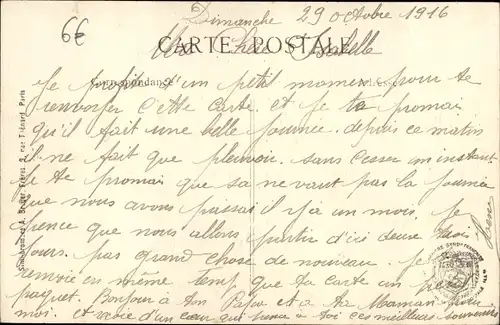 6€
Dimanche 29 octobre 1916
CARTE POSTALE
Ma Chère Isabelle
Correspondance
Je profite d'un petit moment pour te
renvoyer cette carte et je te promai
qu'il fait une belle journée depuis ce matin
il ne fait que pleuvoir sans cesser m instant
Je te promai que sa ne vaut pas la journée
que nous avons passai il y a un mois, je
pence que nous allons partir d'ici deux trois
jours. pas grand chose de nouveau. Je te
renvoie en même temp que ta carte un petit
paquet. Bonjour à ton Papa et a ta Maman pour
moi et recoie d'un cœur qui pense à toi ces meilleurs souvenirs
René
Berger Frères 9, rue Thénard, Paris